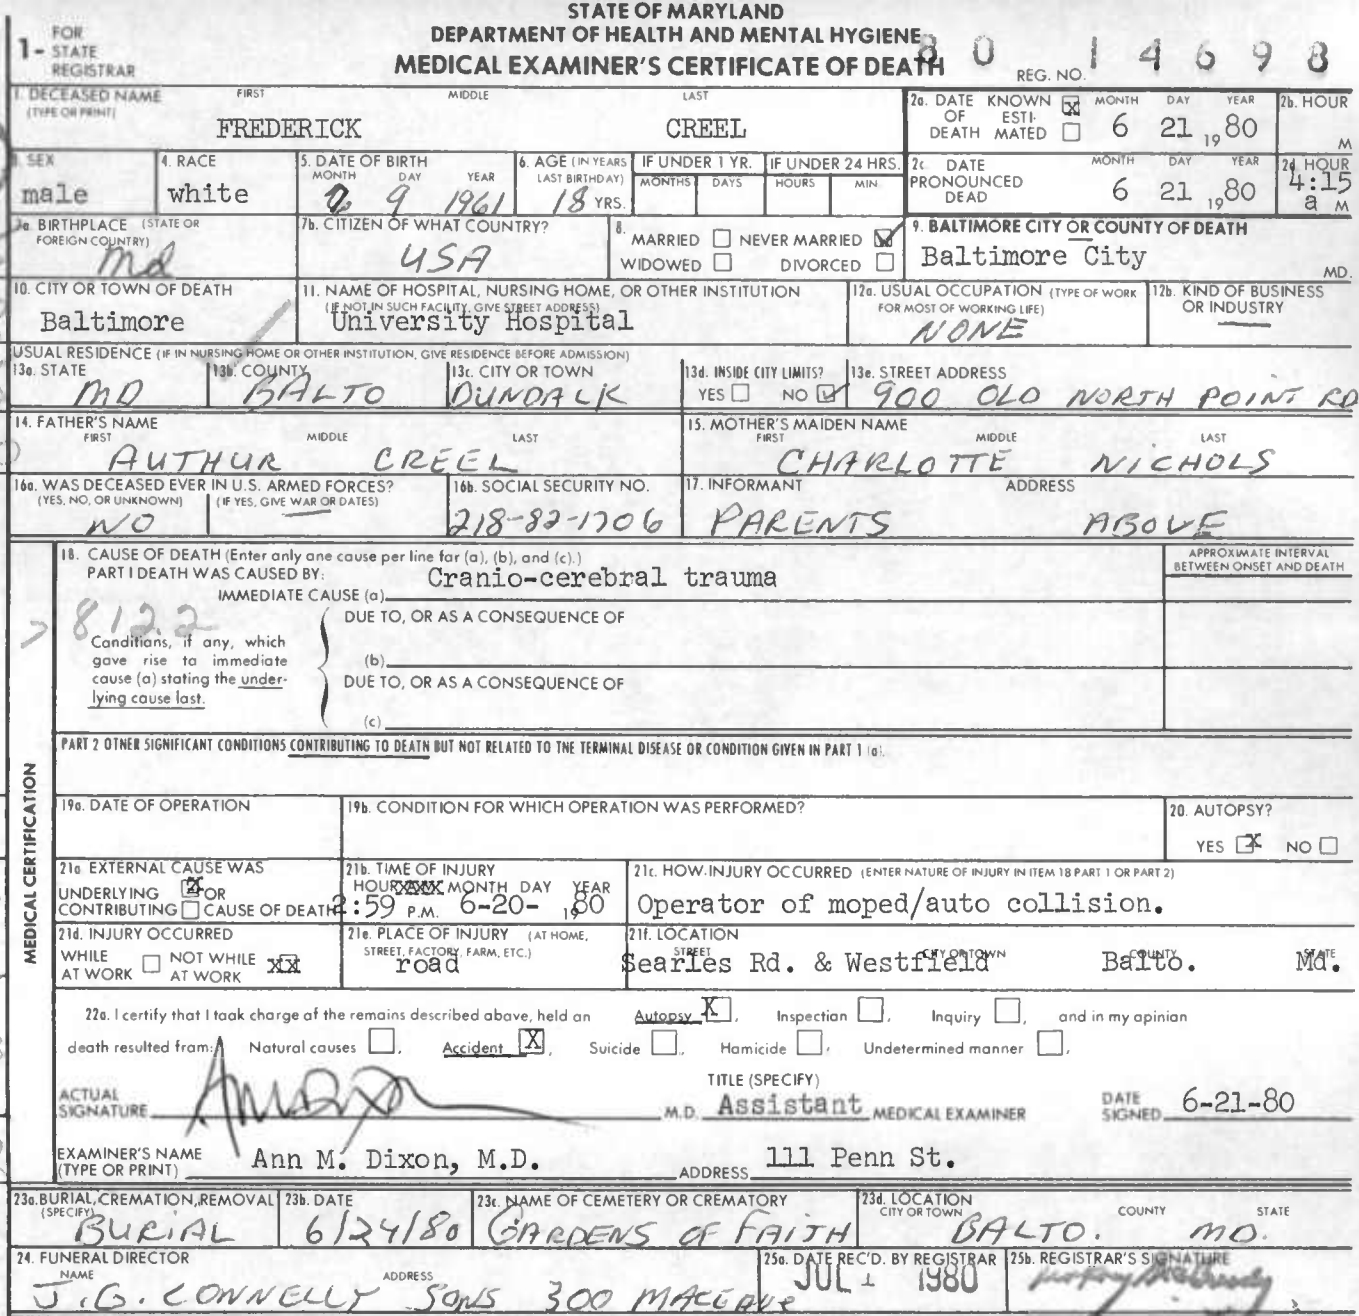 STATE OF MARYLAND
DEPARTMENT OF HEALTH AND MENTAL HYGIENE
MEDICAL EXAMINER'S CERTIFICATE OF DEATH
1- FOR STATE REGISTRAR
REG. NO. 80 14698
1. DECEASED NAME (TYPE OR PRINT) FIRST MIDDLE LAST
FREDERICK CREEL
2a. DATE OF DEATH KNOWN X ESTIMATED MONTH DAY YEAR 6 21 1980
2b. HOUR M
3. SEX male
4. RACE white
5. DATE OF BIRTH MONTH DAY YEAR 9 1961
6. AGE (IN YEARS LAST BIRTHDAY) 18 YRS.
IF UNDER 1 YR. MONTHS DAYS
IF UNDER 24 HRS. HOURS MIN.
2c. DATE PRONOUNCED DEAD MONTH DAY YEAR 6 21 1980
2d. HOUR 4:15 a M
7a. BIRTHPLACE (STATE OR FOREIGN COUNTRY) Md
7b. CITIZEN OF WHAT COUNTRY? USA
8. MARRIED NEVER MARRIED WIDOWED DIVORCED
9. BALTIMORE CITY OR COUNTY OF DEATH Baltimore City MD.
10. CITY OR TOWN OF DEATH Baltimore
11. NAME OF HOSPITAL, NURSING HOME, OR OTHER INSTITUTION (IF NOT IN SUCH FACILITY, GIVE STREET ADDRESS) University Hospital
12a. USUAL OCCUPATION (TYPE OF WORK FOR MOST OF WORKING LIFE) NONE
12b. KIND OF BUSINESS OR INDUSTRY
USUAL RESIDENCE (IF IN NURSING HOME OR OTHER INSTITUTION, GIVE RESIDENCE BEFORE ADMISSION)
13a. STATE MD
13b. COUNTY BALTO
13c. CITY OR TOWN DUNDALK
13d. INSIDE CITY LIMITS? YES NO
13e. STREET ADDRESS 900 OLD NORTH POINT RD
14. FATHER'S NAME FIRST MIDDLE LAST
AUTHUR CREEL
15. MOTHER'S MAIDEN NAME FIRST MIDDLE LAST
CHARLOTTE NICHOLS
16a. WAS DECEASED EVER IN U.S. ARMED FORCES? (YES, NO, OR UNKNOWN) (IF YES, GIVE WAR OR DATES) NO
16b. SOCIAL SECURITY NO. 218-82-1706
17. INFORMANT ADDRESS
PARENTS ABOVE
MEDICAL CERTIFICATION
18. CAUSE OF DEATH (Enter only one cause per line for (a), (b), and (c).)
PART I DEATH WAS CAUSED BY:
IMMEDIATE CAUSE (a) Cranio-cerebral trauma
APPROXIMATE INTERVAL BETWEEN ONSET AND DEATH
8122
Conditions, if any, which gave rise to immediate cause (a) stating the underlying cause last.
DUE TO, OR AS A CONSEQUENCE OF
(b)
DUE TO, OR AS A CONSEQUENCE OF
(c)
PART 2 OTHER SIGNIFICANT CONDITIONS CONTRIBUTING TO DEATH BUT NOT RELATED TO THE TERMINAL DISEASE OR CONDITION GIVEN IN PART 1 (a).
19a. DATE OF OPERATION
19b. CONDITION FOR WHICH OPERATION WAS PERFORMED?
20. AUTOPSY? YES X NO
21a EXTERNAL CAUSE WAS UNDERLYING X OR CONTRIBUTING CAUSE OF DEATH
21b. TIME OF INJURY HOUR MONTH DAY YEAR 2:59 P.M. 6-20- 1980
21c. HOW INJURY OCCURRED (ENTER NATURE OF INJURY IN ITEM 18 PART 1 OR PART 2)
Operator of moped/auto collision.
21d. INJURY OCCURRED WHILE AT WORK NOT WHILE AT WORK XX
21e. PLACE OF INJURY (AT HOME, STREET, FACTORY, FARM, ETC.) road
21f. LOCATION STREET CITY OR TOWN COUNTY STATE
Searles Rd. & Westfield Balto. Md.
22a. I certify that I took charge of the remains described above, held an Autopsy X, Inspection, Inquiry, and in my opinion
death resulted from: Natural causes, Accident X, Suicide, Homicide, Undetermined manner,
ACTUAL SIGNATURE M.D.
TITLE (SPECIFY) Assistant MEDICAL EXAMINER
DATE SIGNED 6-21-80
EXAMINER'S NAME (TYPE OR PRINT) Ann M. Dixon, M.D.
ADDRESS 111 Penn St.
23a. BURIAL, CREMATION, REMOVAL (SPECIFY) BURIAL
23b. DATE 6/24/80
23c. NAME OF CEMETERY OR CREMATORY GARDENS OF FAITH
23d. LOCATION CITY OR TOWN COUNTY STATE
BALTO. MD.
24. FUNERAL DIRECTOR NAME ADDRESS
J.G. CONNELLY SONS 300 MACE AVE
25a. DATE REC'D. BY REGISTRAR JUL 1 1980
25b. REGISTRAR'S SIGNATURE